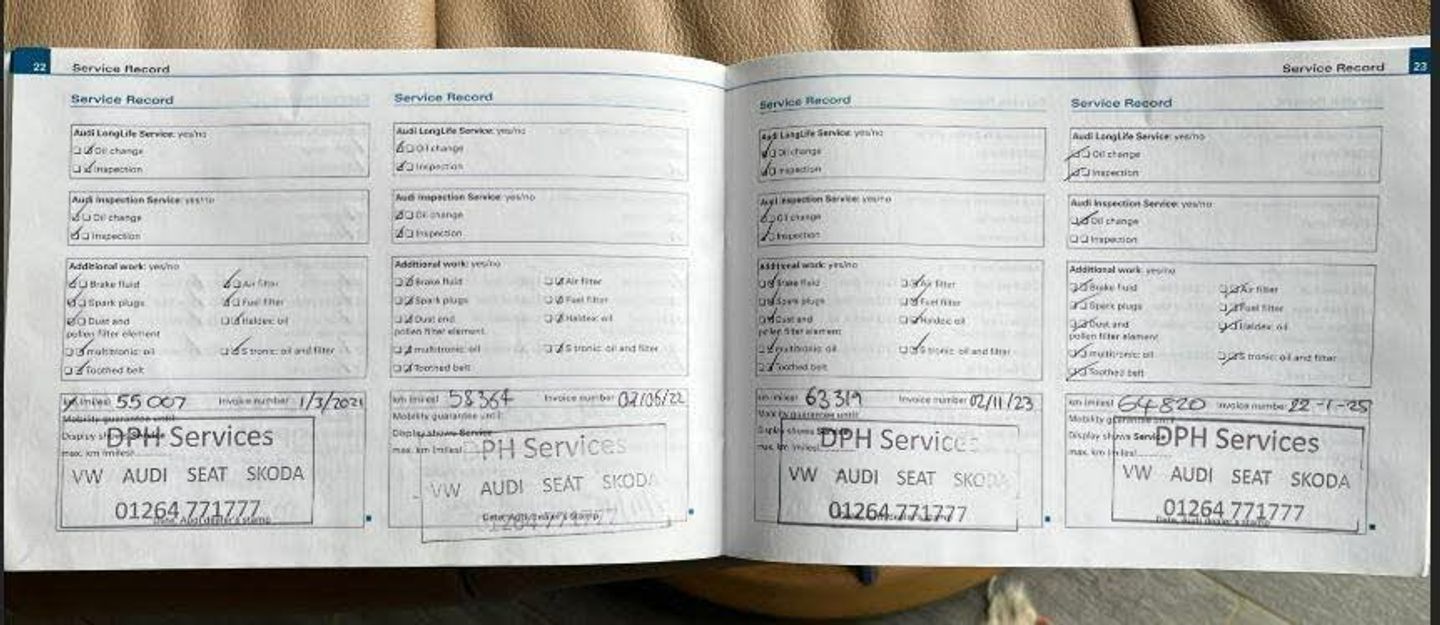 22
Service Record
Service Record
Audi LongLife Service: yes/no
Oil change
Inspection
Audi Inspection Service: yes/no
Oil change
Inspection
Additional work: yes/no
Brake fluid
Air filter
Spark plugs
Fuel filter
Dust and
pollen filter element
Haldex: oil
multitronic: oil
S tronic: oil and filter
Toothed belt
km (miles) 55007 Invoice number 1/3/2021
Mobility guarantee until:
Display shows Service
max. km (miles)
DPH Services
VW AUDI SEAT SKODA
01264 771777
Date, Audi dealer's stamp
Service Record
Audi LongLife Service: yes/no
Oil change
Inspection
Audi Inspection Service: yes/no
Oil change
Inspection
Additional work: yes/no
Brake fluid
Air filter
Spark plugs
Fuel filter
Dust and
pollen filter element
Haldex: oil
multitronic: oil
S tronic: oil and filter
Toothed belt
km (miles) 58364 Invoice number 02/06/22
Mobility guarantee until:
Display shows Service
max. km (miles)
PH Services
VW AUDI SEAT SKODA
01264 771777
Date, Audi dealer's stamp
Service Record
23
Service Record
Audi LongLife Service: yes/no
Oil change
Inspection
Audi Inspection Service: yes/no
Oil change
Inspection
Additional work: yes/no
Brake fluid
Air filter
Spark plugs
Fuel filter
Dust and
pollen filter element
Haldex: oil
multitronic: oil
S tronic: oil and filter
Toothed belt
km (miles) 63319 Invoice number 02/11/23
Mobility guarantee until:
Display shows
max. km (miles)
DPH Services
VW AUDI SEAT SKODA
01264 771777
Service Record
Audi LongLife Service: yes/no
Oil change
Inspection
Audi Inspection Service: yes/no
Oil change
Inspection
Additional work: yes/no
Brake fluid
Air filter
Spark plugs
Fuel filter
Dust and
pollen filter element
Haldex: oil
multitronic: oil
S tronic: oil and filter
Toothed belt
km (miles) 64820 Invoice number 22-1-25
Mobility guarantee until:
Display shows Service
max. km (miles)
DPH Services
VW AUDI SEAT SKODA
01264 771777
Date, Audi dealer's stamp